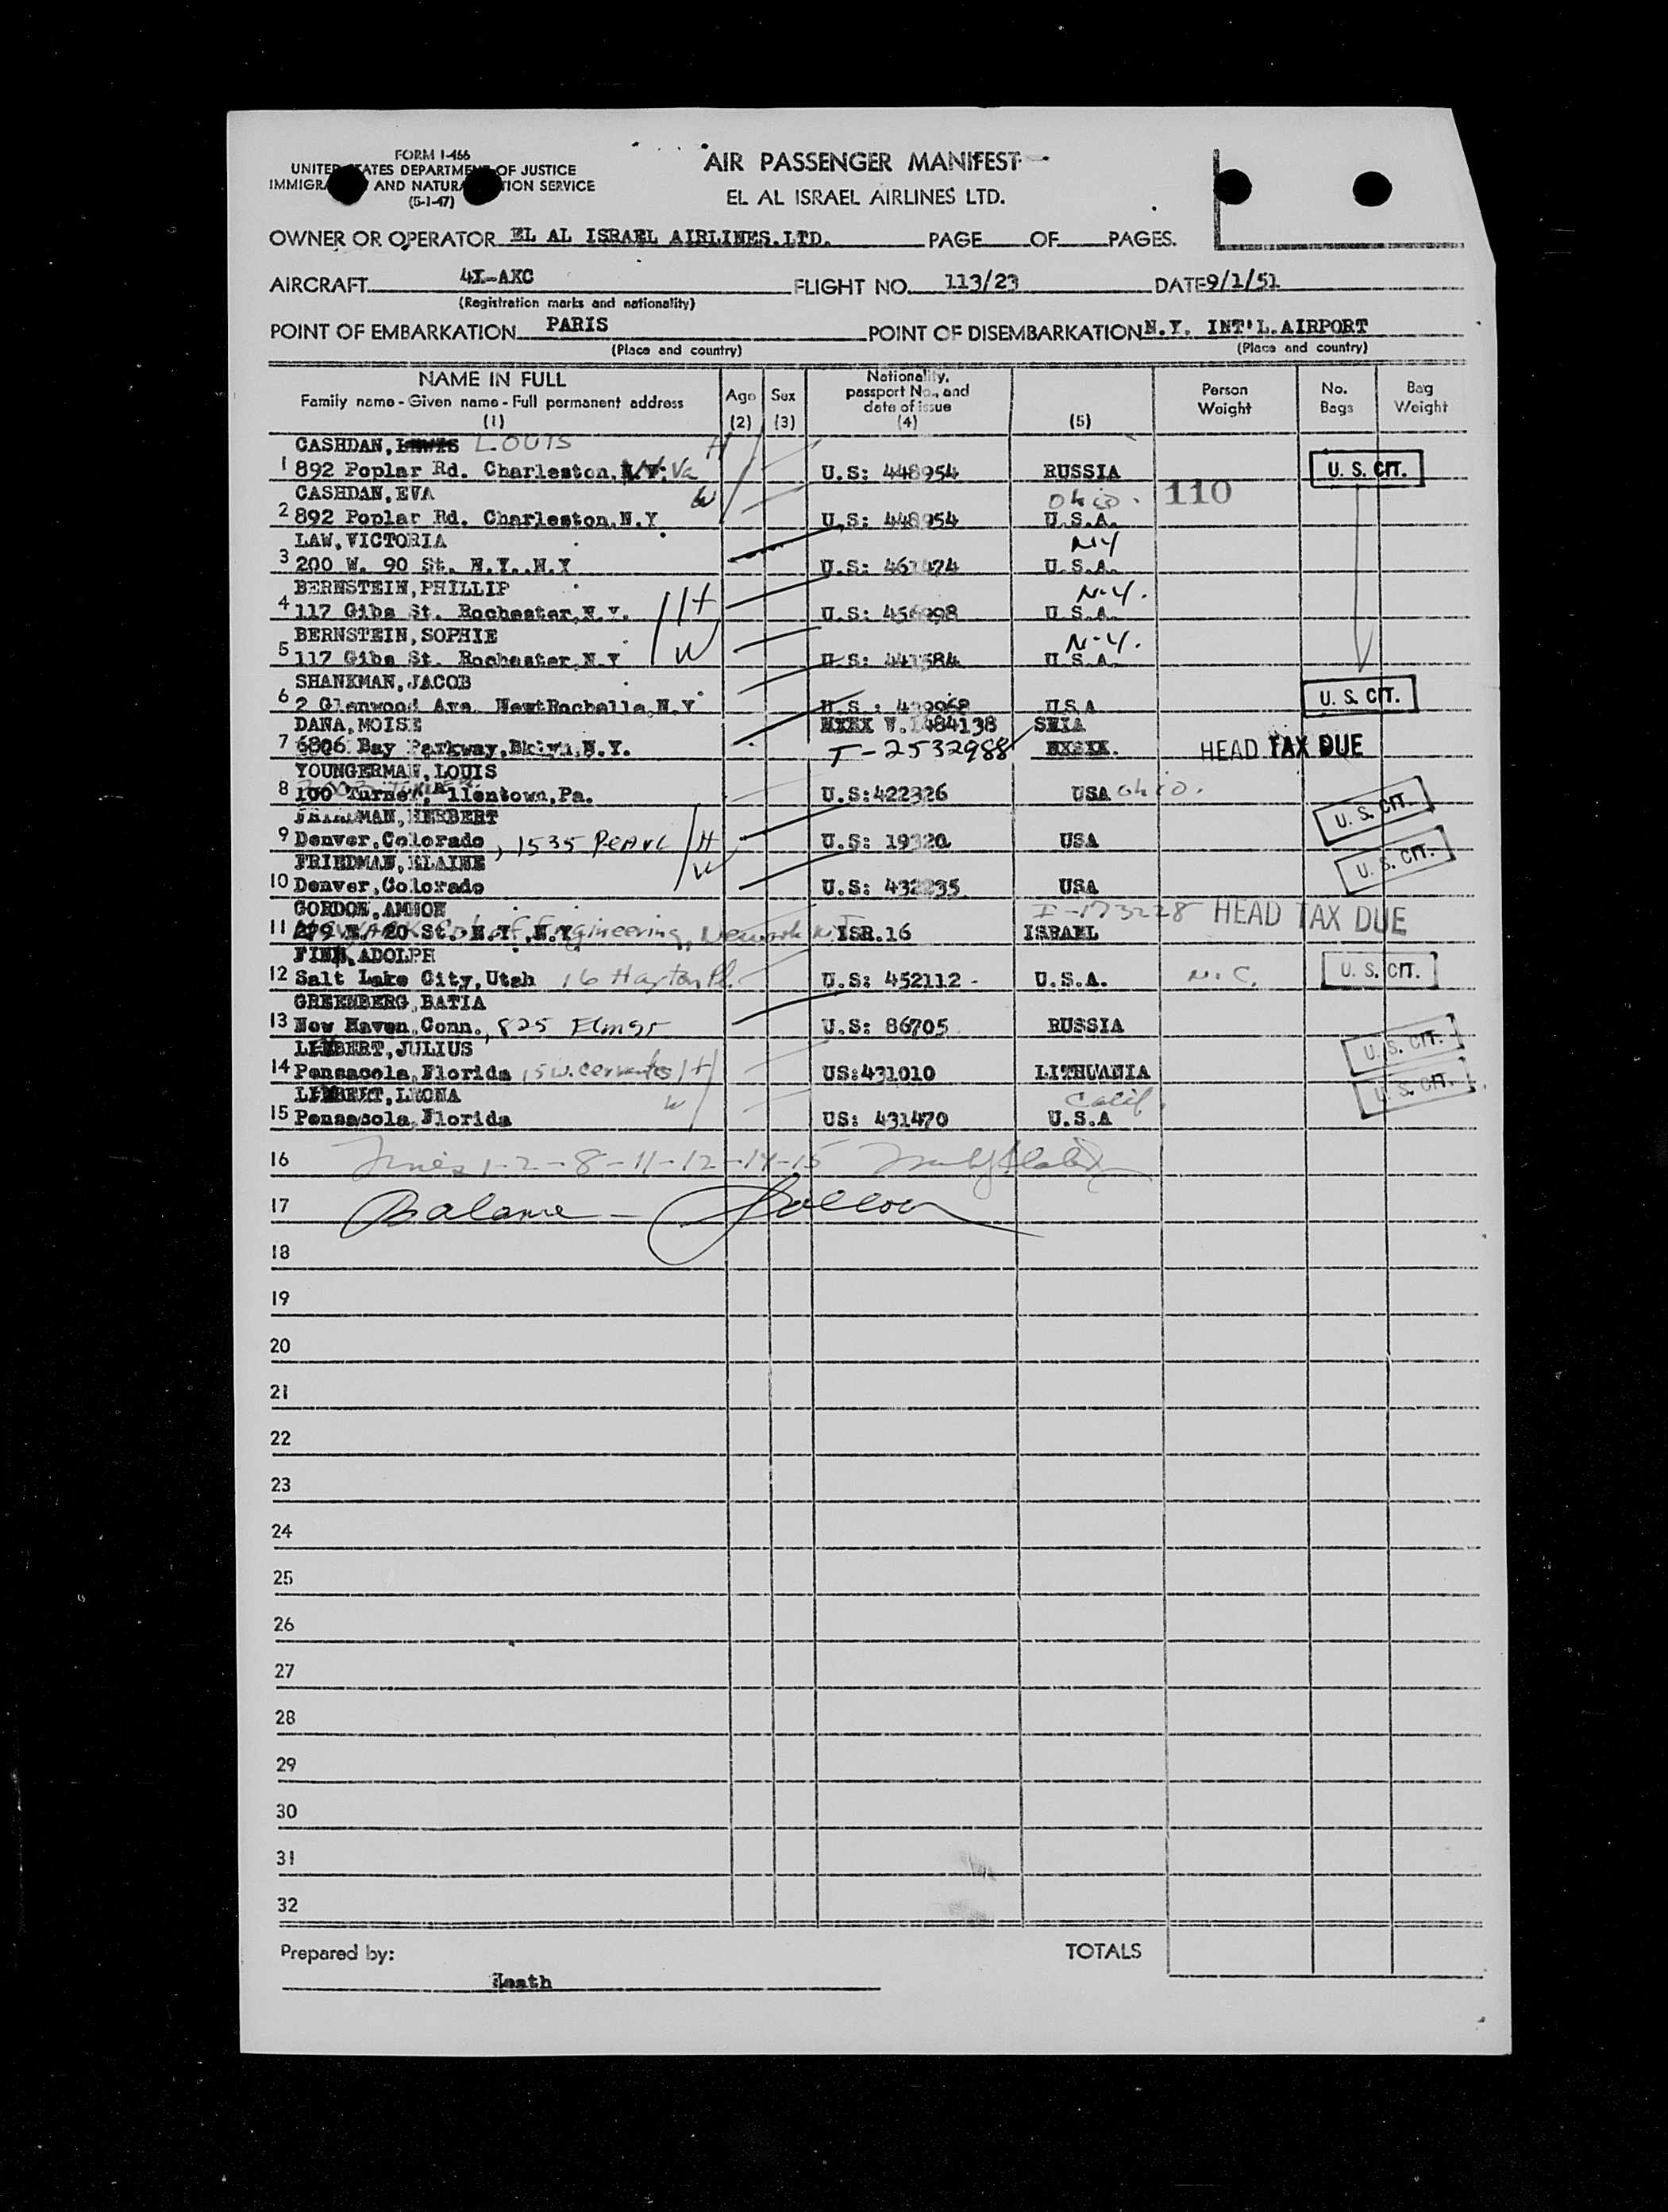 FORM I-466
UNITED STATES DEPARTMENT OF JUSTICE
IMMIGRATION AND NATURALIZATION SERVICE
(5-1-47)
AIR PASSENGER MANIFEST
EL AL ISRAEL AIRLINES LTD.
OWNER OR OPERATOR EL AL ISRAEL AIRLINES.LTD. PAGE OF PAGES.
AIRCRAFT 4X-AKC FLIGHT NO. 113/23 DATE 9/1/51
(Registration marks and nationality)
POINT OF EMBARKATION PARIS POINT OF DISEMBARKATION N.Y. INT'L.AIRPORT
(Place and country) (Place and country)
NAME IN FULL
Family name - Given name - Full permanent address
(1)
Age
(2)
Sex
(3)
Nationality,
passport No., and
date of issue
(4)
(5)
Person
Weight
No.
Bags
Bag
Weight
CASHDAN, LOUIS H
1 892 Poplar Rd. Charleston, W.Va U.S: 448954 RUSSIA U. S. CIT.
CASHDAN,EVA W Ohio. 110
2 892 Poplar Rd. Charleston.N.Y U.S: 448954 U.S.A.
LAW,VICTORIA NY
3 200 W. 90 St. N.Y..N.Y U.S: U.S.A.
BERNSTEIN,PHILLIP H N.Y.
4 117 Gibs St. Rochester,N.Y. U.S: U.S.A.
BERNSTEIN,SOPHIE W N.Y.
5 117 Gibs St. Rochester,N.Y U.S: U.S.A.
SHANKMAN,JACOB
6 2 Glenwood Ave. NewtRochelle,N.Y U.S : USA U. S. CIT.
DANA,MOISE V.1484138
7 6806 Bay Parkway,Bklyn,N.Y. T-2532988 HEAD TAX DUE
YOUNGERMAN,LOUIS
8 100 Turner, Allentown,Pa. U.S:422326 USA Ohio.
FRIEDMAN,HERBERT U. S. CIT.
9 Denver,Colorado, 1535 Pearl H U.S: 19320 USA
FRIEDMAN,ELAINE W U. S. CIT.
10 Denver,Colorado U.S: 432235 USA
GORDON,AMNON I-173228 HEAD TAX DUE
11 Engineering, Newark ISR.16 ISRAEL
FINE,ADOLPH
12 Salt Lake City,Utah 16 Haxton Pl. U.S: 452112 - U.S.A. N.C. U. S. CIT.
GREENBERG,BATIA
13 New Haven,Conn., 825 Elmst U.S: 86705 RUSSIA
JULIUS U. S. CIT.
14 Pensacola,Florida 15 W. Cervantes H US:431010 LITHUANIA
LEONA W Calif. U. S. CIT.
15 Pensacola,Florida US: 431470 U.S.A
16 1-2-8-11-12-14-15
17 Balance -
18
19
20
21
22
23
24
25
26
27
28
29
30
31
32
Prepared by: TOTALS
Heath